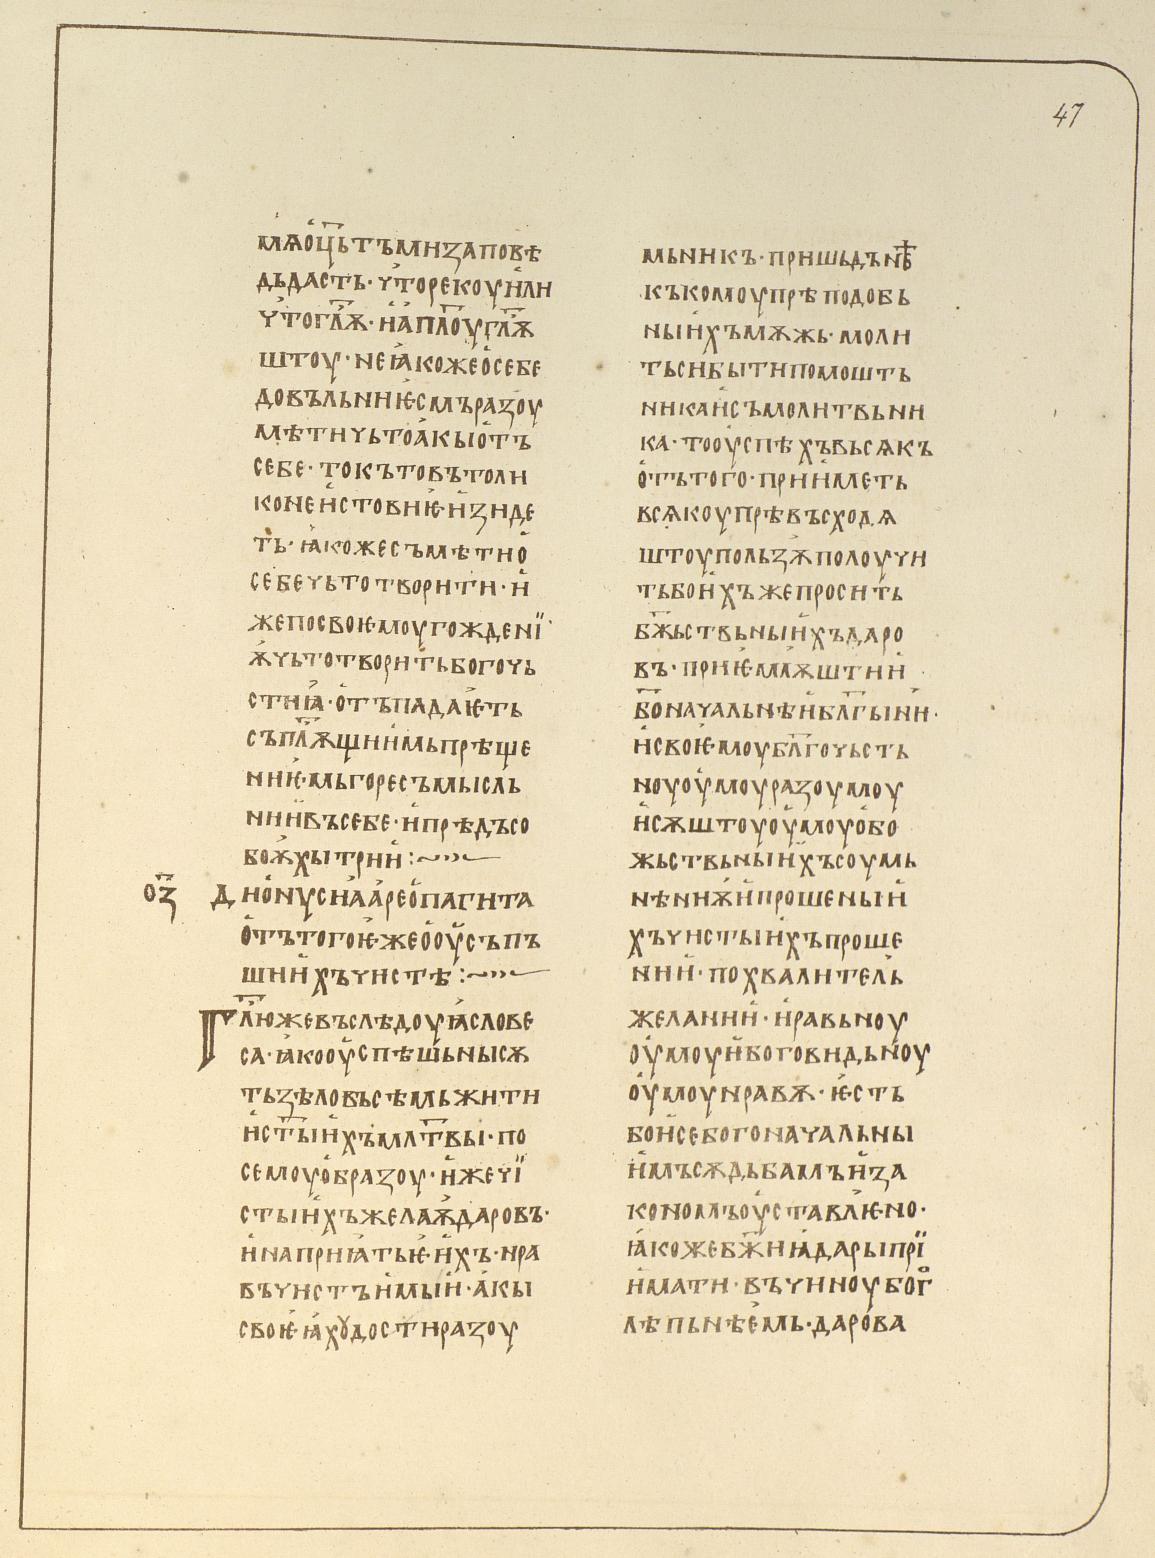 47
мѧо҃цьтъмнзаповѣ
дьдасть·ꙋ̇торекоуи҆лн
ꙋ҆тогл҃ѭ·на҆пл҃оугл҃ѭ
штоу·неꙗ҆кожео҆себе
довъльннѥ·съмъразоу
мѣтиꙋьтоа҆кыо҆тъ
себе·токътовътоли
конеи҆стовиѥ·и҆зиде
ть·ꙗкожесъмѣтио҆
себеꙋьтотворити·и҆
жепосвоѥ·моугождені҆
ѭꙋьтотворитьбогоꙋь
стиꙗ҆·о҆тъпадаѥ·ть
съпл҃ѭщиимьпрѣще
ниѥ·мьгоресъмысль
ниивъсебе·и҆прѣдъсо
боѭхытрии:~
о҃з Дио҆нусиа҆а҆рео҆пагита
о҆тътогоѥ·жео҆оу҆съпъ
шии҆хъꙋистѣ:~
Гл҃южевъслѣдоуꙗ҆слове
са·ꙗкооу҆спѣшьнысѫ
тьзѣловьсѣмьжити
и҆ст҃ыи҆хъмл҃твы·по
семоуо҆бразоу·и҆жеꙋї
стыи҆хъжелаѭдаровъ·
и҆наприꙗтьѥ·и҆хъ·нра
въꙋистъи҆мыи҆·а҆кы
своѥ·ꙗ҆хꙋдостиразоу
мьникъ·пришьдънѣ
къкомоупрѣподобь
ныи҆хъмѫжь·моли
тьсибытипомошть
никаи҆съмолитвьни
ка·тооу҆спѣхъвьсѧкъ
о҆тътого·прии҆меть
всѧкоупрѣвъсходѧ
штоупользѫполоуꙋи
тьбои҆хъжепросить
бж҃ьствьныи҆хъдаро
въ·приѥмлѭштии҆
б҃онаꙋальнѣи҆бл҃гыни·
и҆своѥ·моубл҃гоꙋьсть
ноуоу҆моуразоумоу
и҆сѫштоуоу҆моуо҆бо
жьствьныи҆хъсоумь
нѣниѭи҆прошеныи҆
хъꙋистыи҆хъпроше
нии҆·похвалитель
желании҆·и҆равьноу
оу҆моуи҆боговидьноу
оу҆моунравѫ·ѥ·сть
бои҆себогонаꙋальны
и҆мъсѫдьбамъи҆за
кономъоу҆ставлѥ·но·
ꙗкожебж҃иꙗ҆дарыпрї
и҆мати·въꙋинноубог
лѣпьнѣе҆мь·даро҆ва